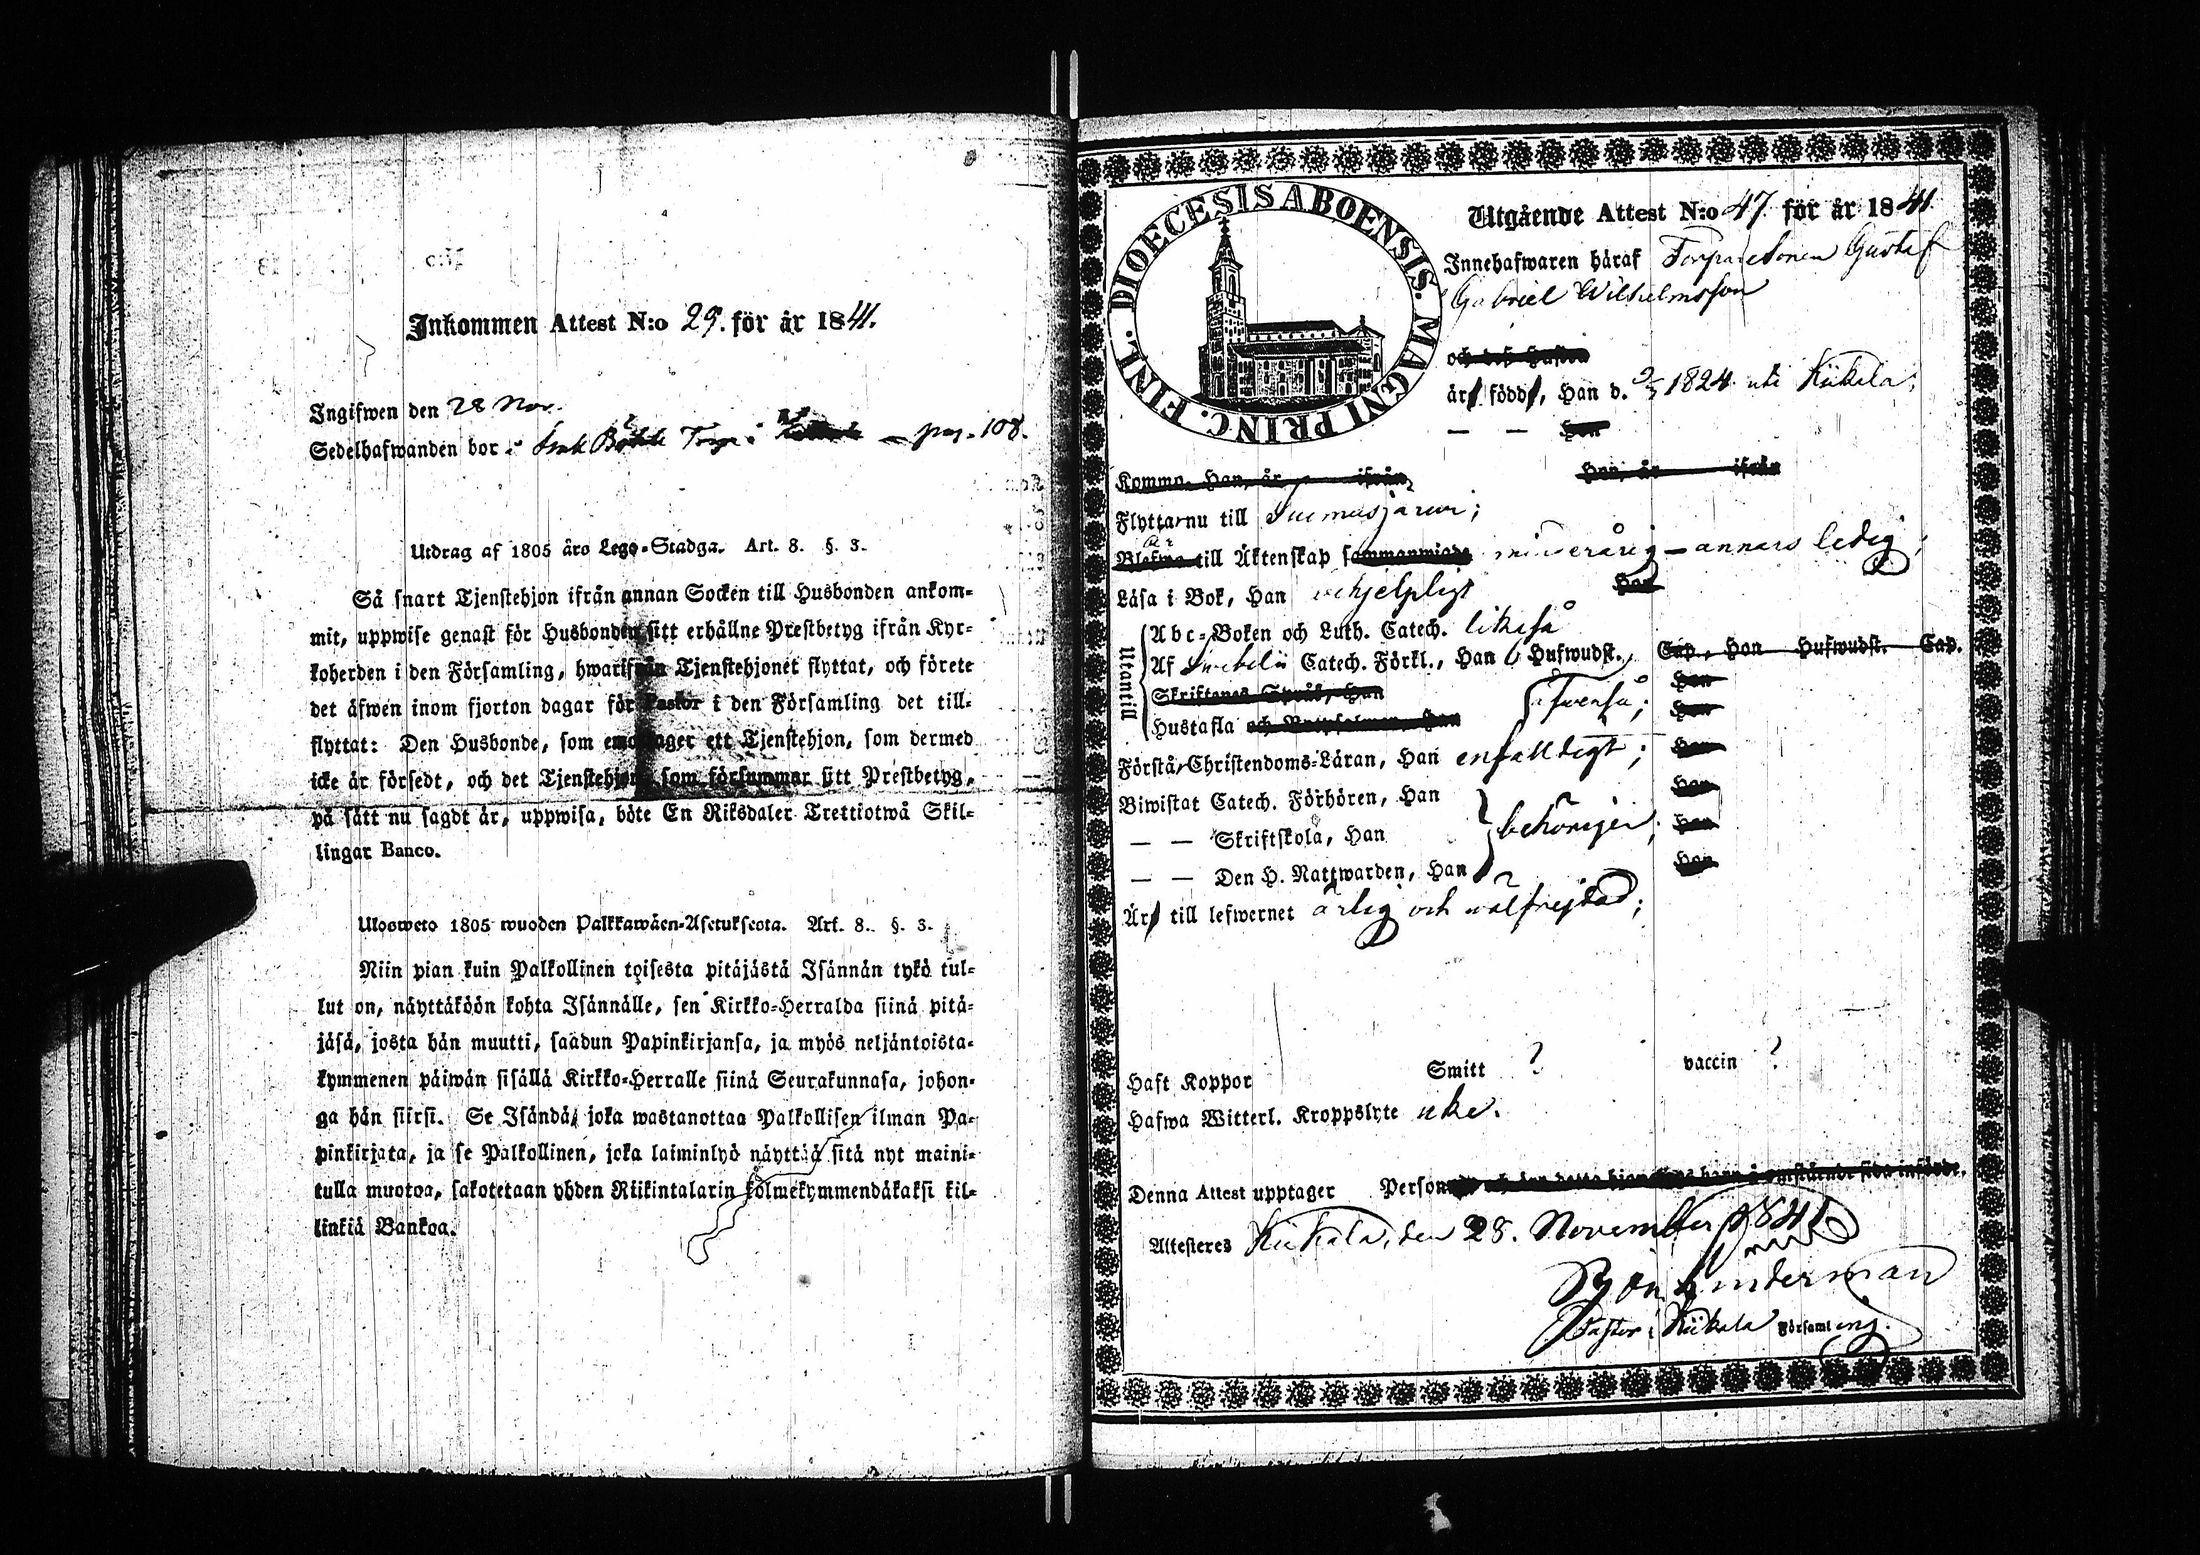 Inkommen Attest N:o 29. för år 1841.
Ingifwen den 28 Nov.
Sedelhafwanden bor i Torp i pag. 108.
Utdrag af 1805 års Lego-Stadga. Art. 8. §. 3.
Så snart Tjenstehjon ifrån annan Socken till Husbonden ankom-
mit, uppwise genast för Husbonden sitt erhållne Prestbetyg ifrån Kyr-
koherden i den Församling, hwarifrån Tjenstehjonet flyttat, och förete
det äfwen inom fjorton dagar för Pastor i den Församling det till-
flyttat: Den Husbonde, som emottager ett Tjenstehjon, som dermed
icke är försedt, och det Tjenstehjon, som försummar sitt Prestbetyg,
på sätt nu sagdt är, uppwisa, böte En Riksdaler Trettiotwå Skil-
lingar Banco.
Ulosweto 1805 wuoden Palkkawäen-Asetuksesta. Art. 8. §. 3.
Niin pian kuin Palkollinen toisesta pitäjästä Isännän tykö tul-
lut on, näyttäköön kohta Isännälle, sen Kirkko-Herralda siinä pitä-
jäsä, josta hän muutti, saadun Papinkirjansa, ja myös neljäntoista-
kymmenen päiwän sisällä Kirkko-Herralle siinä Seurakunnasa, johon-
ga hän siirsi. Se Isändä, joka wastanottaa Palkollisen ilman Pa-
pinkirjata, ja se Palkollinen, joka laiminlyö näyttää sitä nyt maini-
tulla muotoa, sakotetaan yhden Riikintalarin kolmekymmendäkaksi kil-
linkiä Bankoa.
DIOECESIS ABOENSIS. MAGNI PRINC. FINL.
Utgående Attest N:o 47 för år 1841.
Innehafwaren häraf Torparesonen Gustaf
Gabriel Wilhelmsson
och dess Hustru
är född, Han d. 1824 uti Kiikala;
— — Hon
Kommo, Han, år ifrån Hon, år ifrån
Flyttar nu till Suomusjärwi;
är till Äktenskap minderårig – annars ledig;
Läsa i Bok, Han ohjelpligt Hon
Utantill
Abc-Boken och Luth. Catech. likaså
Af Swebelii Catech. Förkl., Han 6 Hufwudst., Cap., Hon Hufwudst. Cap.
Skriftenes Språk, Han Hon
Hustafla och Botpsalmer, Han äfwenså; Hon
Förstå Christendoms-Läran, Han enfaldigt; Hon
Biwistat Catech. Förhören, Han Hon
— — Skriftskola, Han behörigen; Hon
— — Den H. Nattwarden, Han Hon
Är till lefwernet ärlig och wälfrejdad;
Haft Koppor Smitt ? vaccin ?
Hafwa Witterl. Kroppslyte icke.
Denna Attest upptager Person
Attesteres Kiikala, den 28. November 1841
Linderman
Pastor i Kiikala Församling.